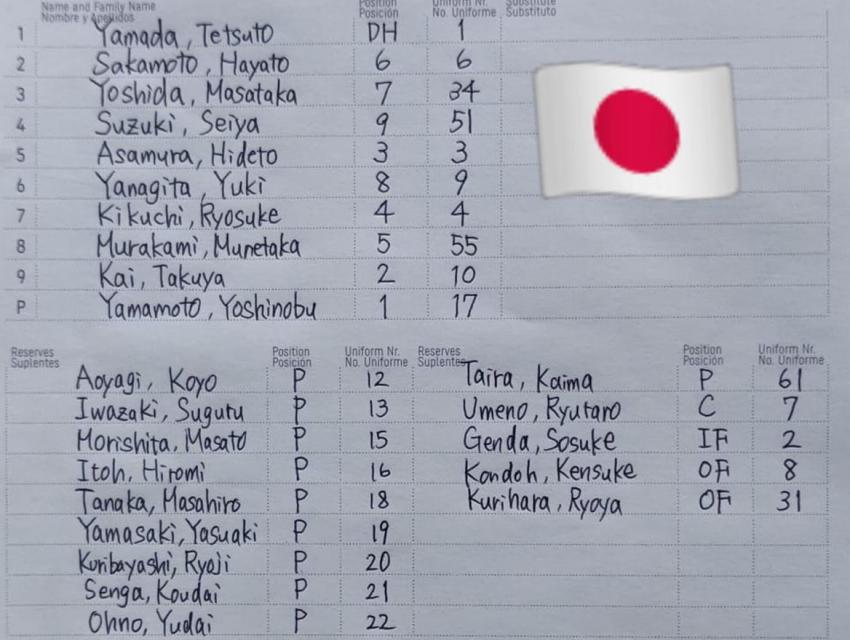 Name and Family Name Position Uniform Nr. Substitute
Nombre y Apellidos Posición No. Uniforme Substituto
1 Yamada, Tetsuto DH 1
2 Sakamoto, Hayato 6 6
3 Yoshida, Masataka 7 34
4 Suzuki, Seiya 9 51
5 Asamura, Hideto 3 3
6 Yanagita, Yuki 8 9
7 Kikuchi, Ryosuke 4 4
8 Murakami, Munetaka 5 55
9 Kai, Takuya 2 10
P Yamamoto, Yoshinobu 1 17
Reserves Position Uniform Nr. Reserves Position Uniform Nr.
Suplentes Posición No. Uniforme Suplentes Posición No. Uniforme
Aoyagi, Koyo P 12 Taira, Kaima P 61
Iwazaki, Sugutu P 13 Umeno, Ryutaro C 7
Morishita, Masato P 15 Genda, Sosuke IF 2
Itoh, Hiromi P 16 Kondoh, Kensuke OF 8
Tanaka, Masahiro P 18 Kurihara, Ryoya OF 31
Yamasaki, Yasuaki P 19
Kuribayashi, Ryoji P 20
Senga, Koudai P 21
Ohno, Yudai P 22